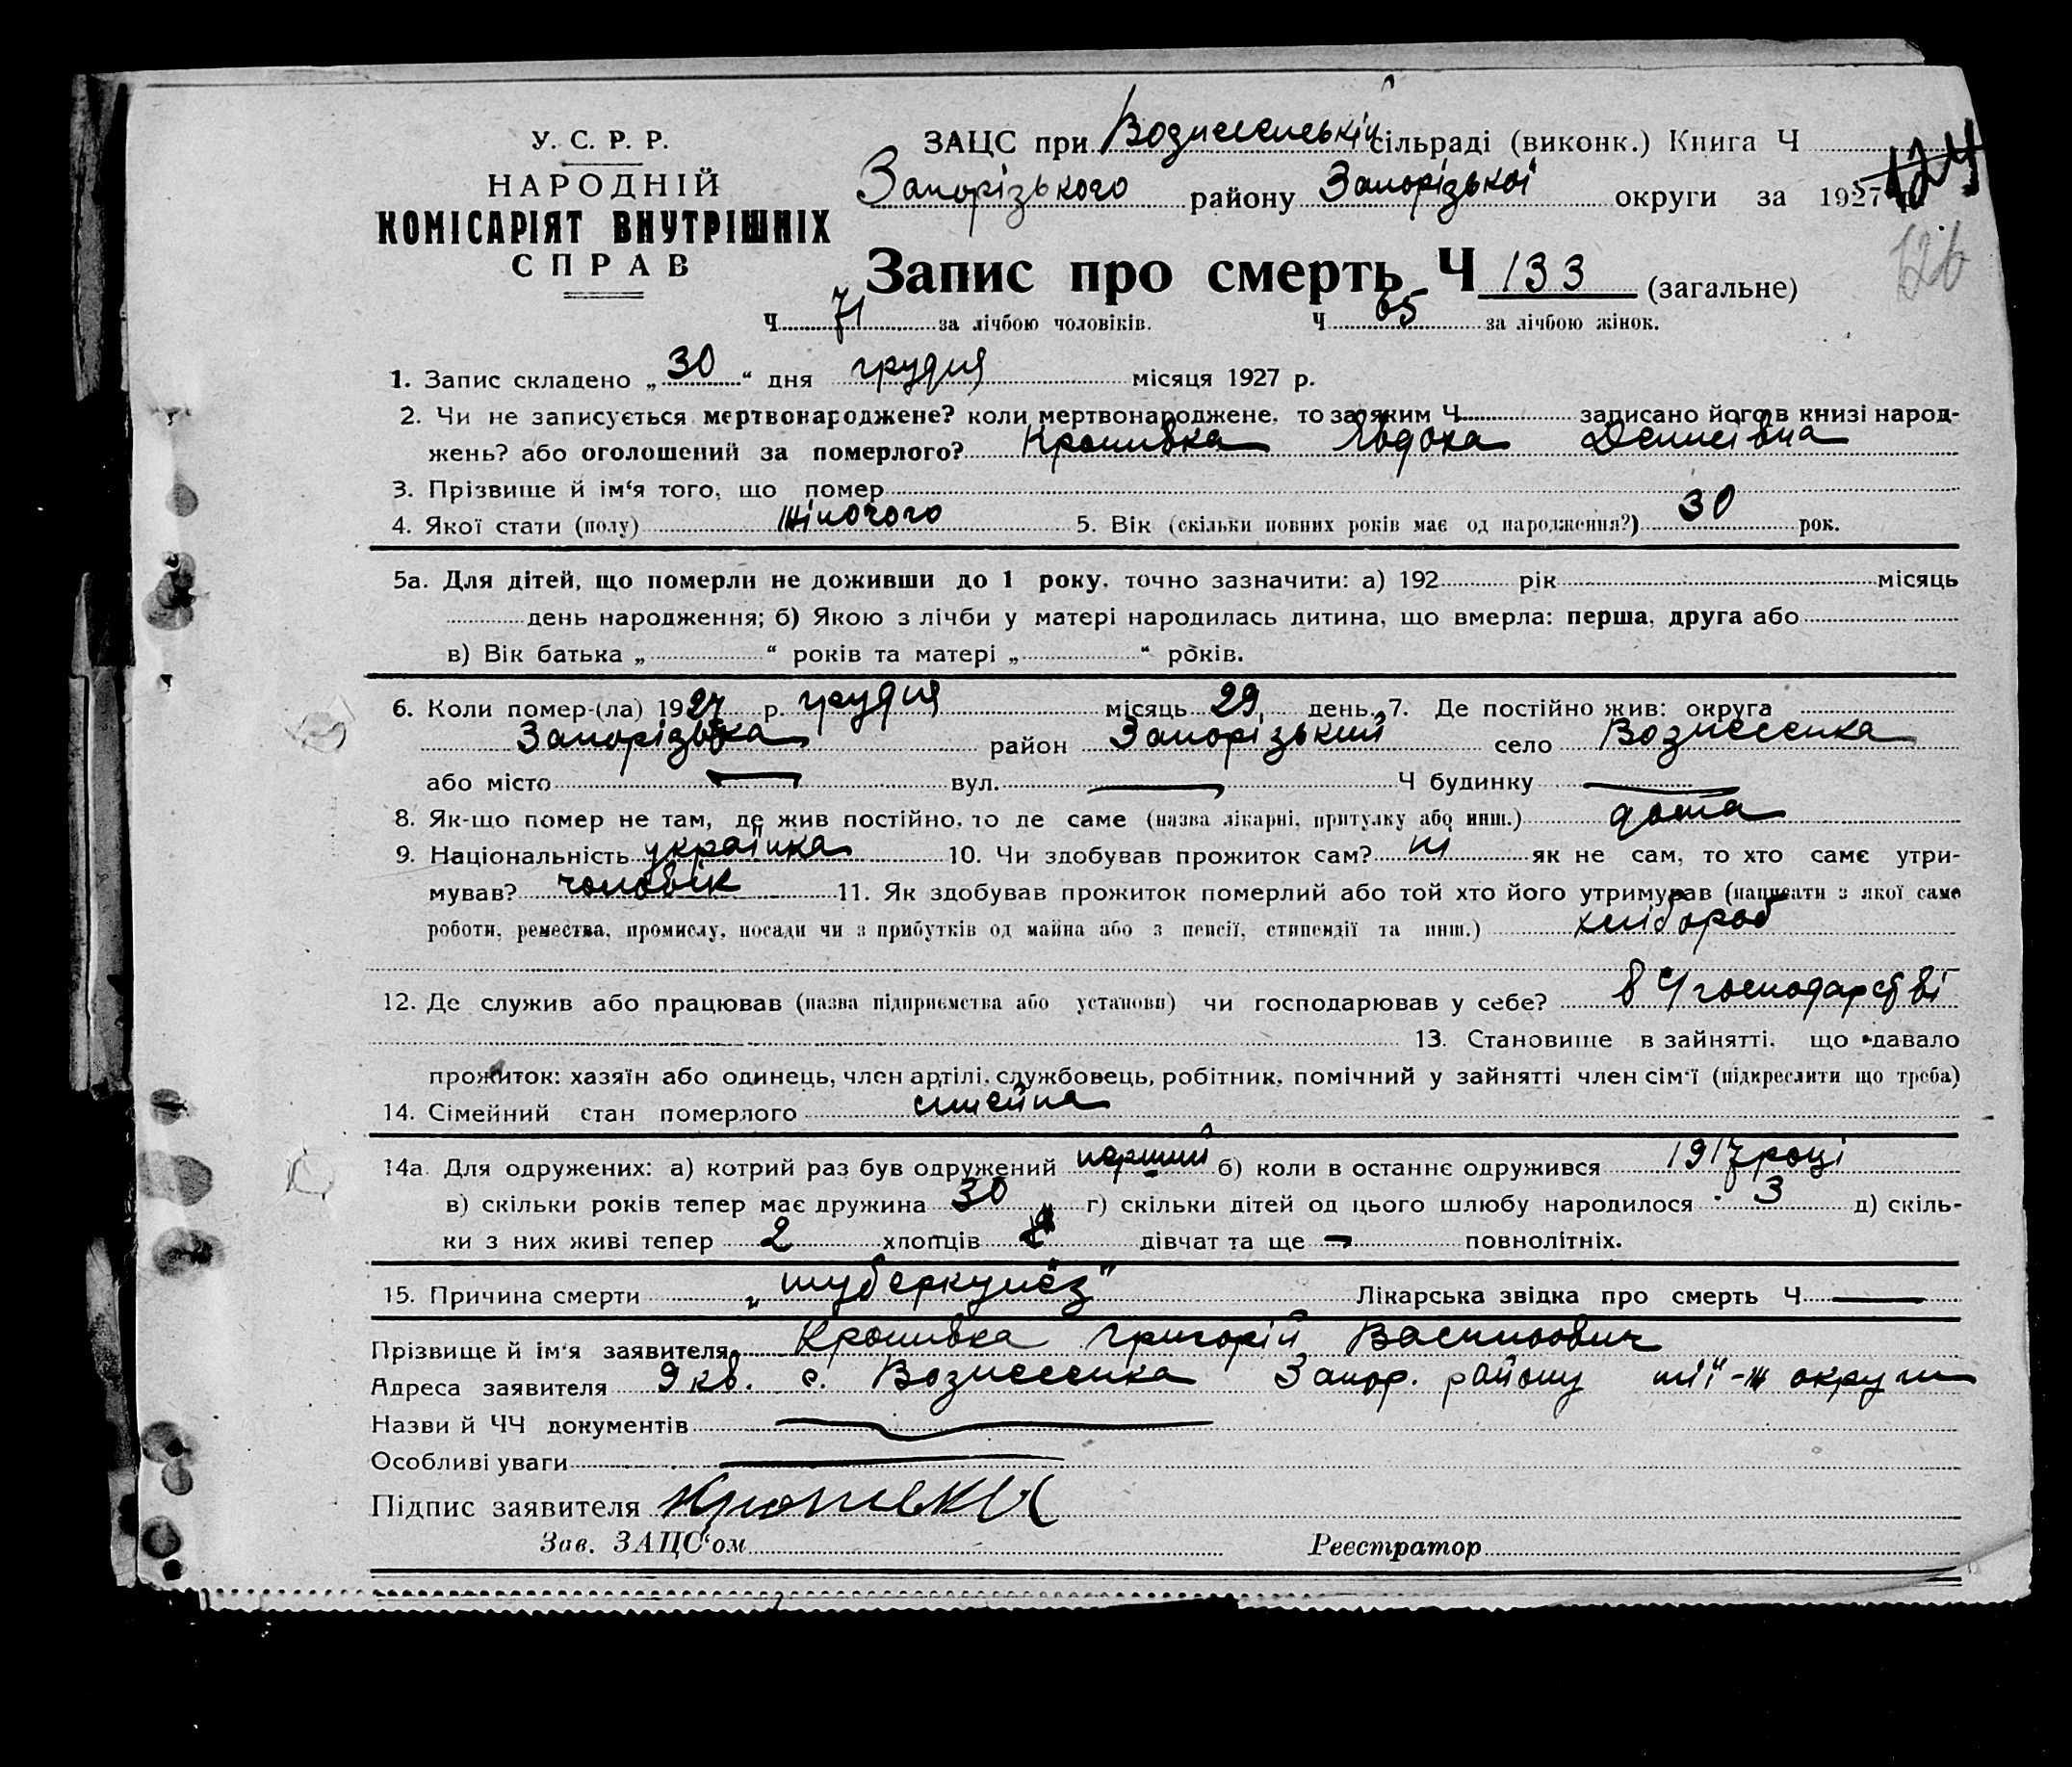 У. С. Р. Р.
НАРОДНІЙ
КОМІСАРІЯТ ВНУТРІШНІХ
СПРАВ
ЗАЦС при Вознесенській сільраді (виконк.) Книга Ч
Запорізького району Запорізької округи за 1927
124
126
Запис про смерть Ч 133 (загальне)
Ч 71 за лічбою чоловіків. Ч 65 за лічбою жінок.
1. Запис складено „30“ дня грудня місяця 1927 р.
2. Чи не записується мертвонароджене? коли мертвонароджене, то за яким Ч записано його в книзі народ-
жень? або оголошений за померлого? Кропивка Явдоха Денисівна
3. Прізвище й ім‘я того, що помер
4. Якої стати (полу) жіночого 5. Вік (скільки повних років має од народження?) 30 рок.
5а. Для дітей, що померли не доживши до 1 року, точно зазначити: а) 192 рік місяць
день народження; б) Якою з лічби у матері народилась дитина, що вмерла: перша, друга або
в) Вік батька „ “ років та матері „ “ років.
6. Коли помер-(ла) 1927 р. грудня місяць 29 день. 7. Де постійно жив: округа
Запорізька район Запорізький село Вознесенка
або місто — вул. — Ч будинку —
8. Як-що помер не там, де жив постійно, то де саме (назва лікарні, притулку або инш.) дома
9. Національність українка 10. Чи здобував прожиток сам? ні як не сам, то хто саме утри-
мував? чоловік 11. Як здобував прожиток померлий або той хто його утримував (написати з якої саме
роботи, ремества, промислу, посади чи з прибутків од майна або з пенсії, стипендії та инш.) хлібороб
12. Де служив або працював (назва підприємства або установи) чи господарював у себе? в С/господарстві
13. Становище в зайнятті, що давало
прожиток: хазяїн або одинець, член артілі, службовець, робітник, помічний у зайнятті член сім‘ї (підкреслити що треба)
14. Сімейний стан померлого сімейна
14а. Для одружених: а) котрий раз був одружений перший б) коли в останнє одружився 1917 році
в) скільки років тепер має дружина 30 г) скільки дітей од цього шлюбу народилося 3 д) скіль-
ки з них живі тепер 2 хлопців дівчат та ще — повнолітніх.
15. Причина смерти „туберкульоз“ Лікарська звідка про смерть Ч —
Прізвище й ім‘я заявителя Кропивка Григорій Васильович
Адреса заявителя 9 кв. с. Вознесенка Запор. району тії-ж округи
Назви й ЧЧ документів —
Особливі уваги —
Підпис заявителя Кропивка
Зав. ЗАЦС‘ом Реєстратор